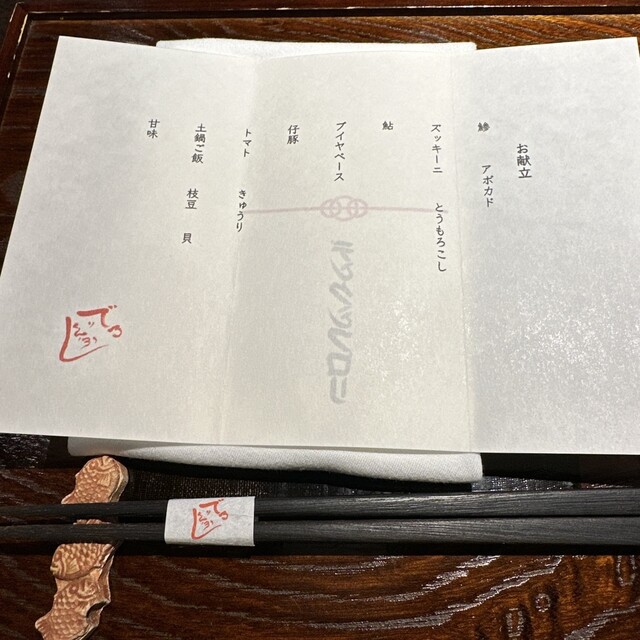 お献立
鯵 アボカド
ズッキーニ とうもろこし
鮎
ブイヤベース
仔豚
トマト きゅうり
土鍋ご飯 枝豆 貝
甘味
でる
でる